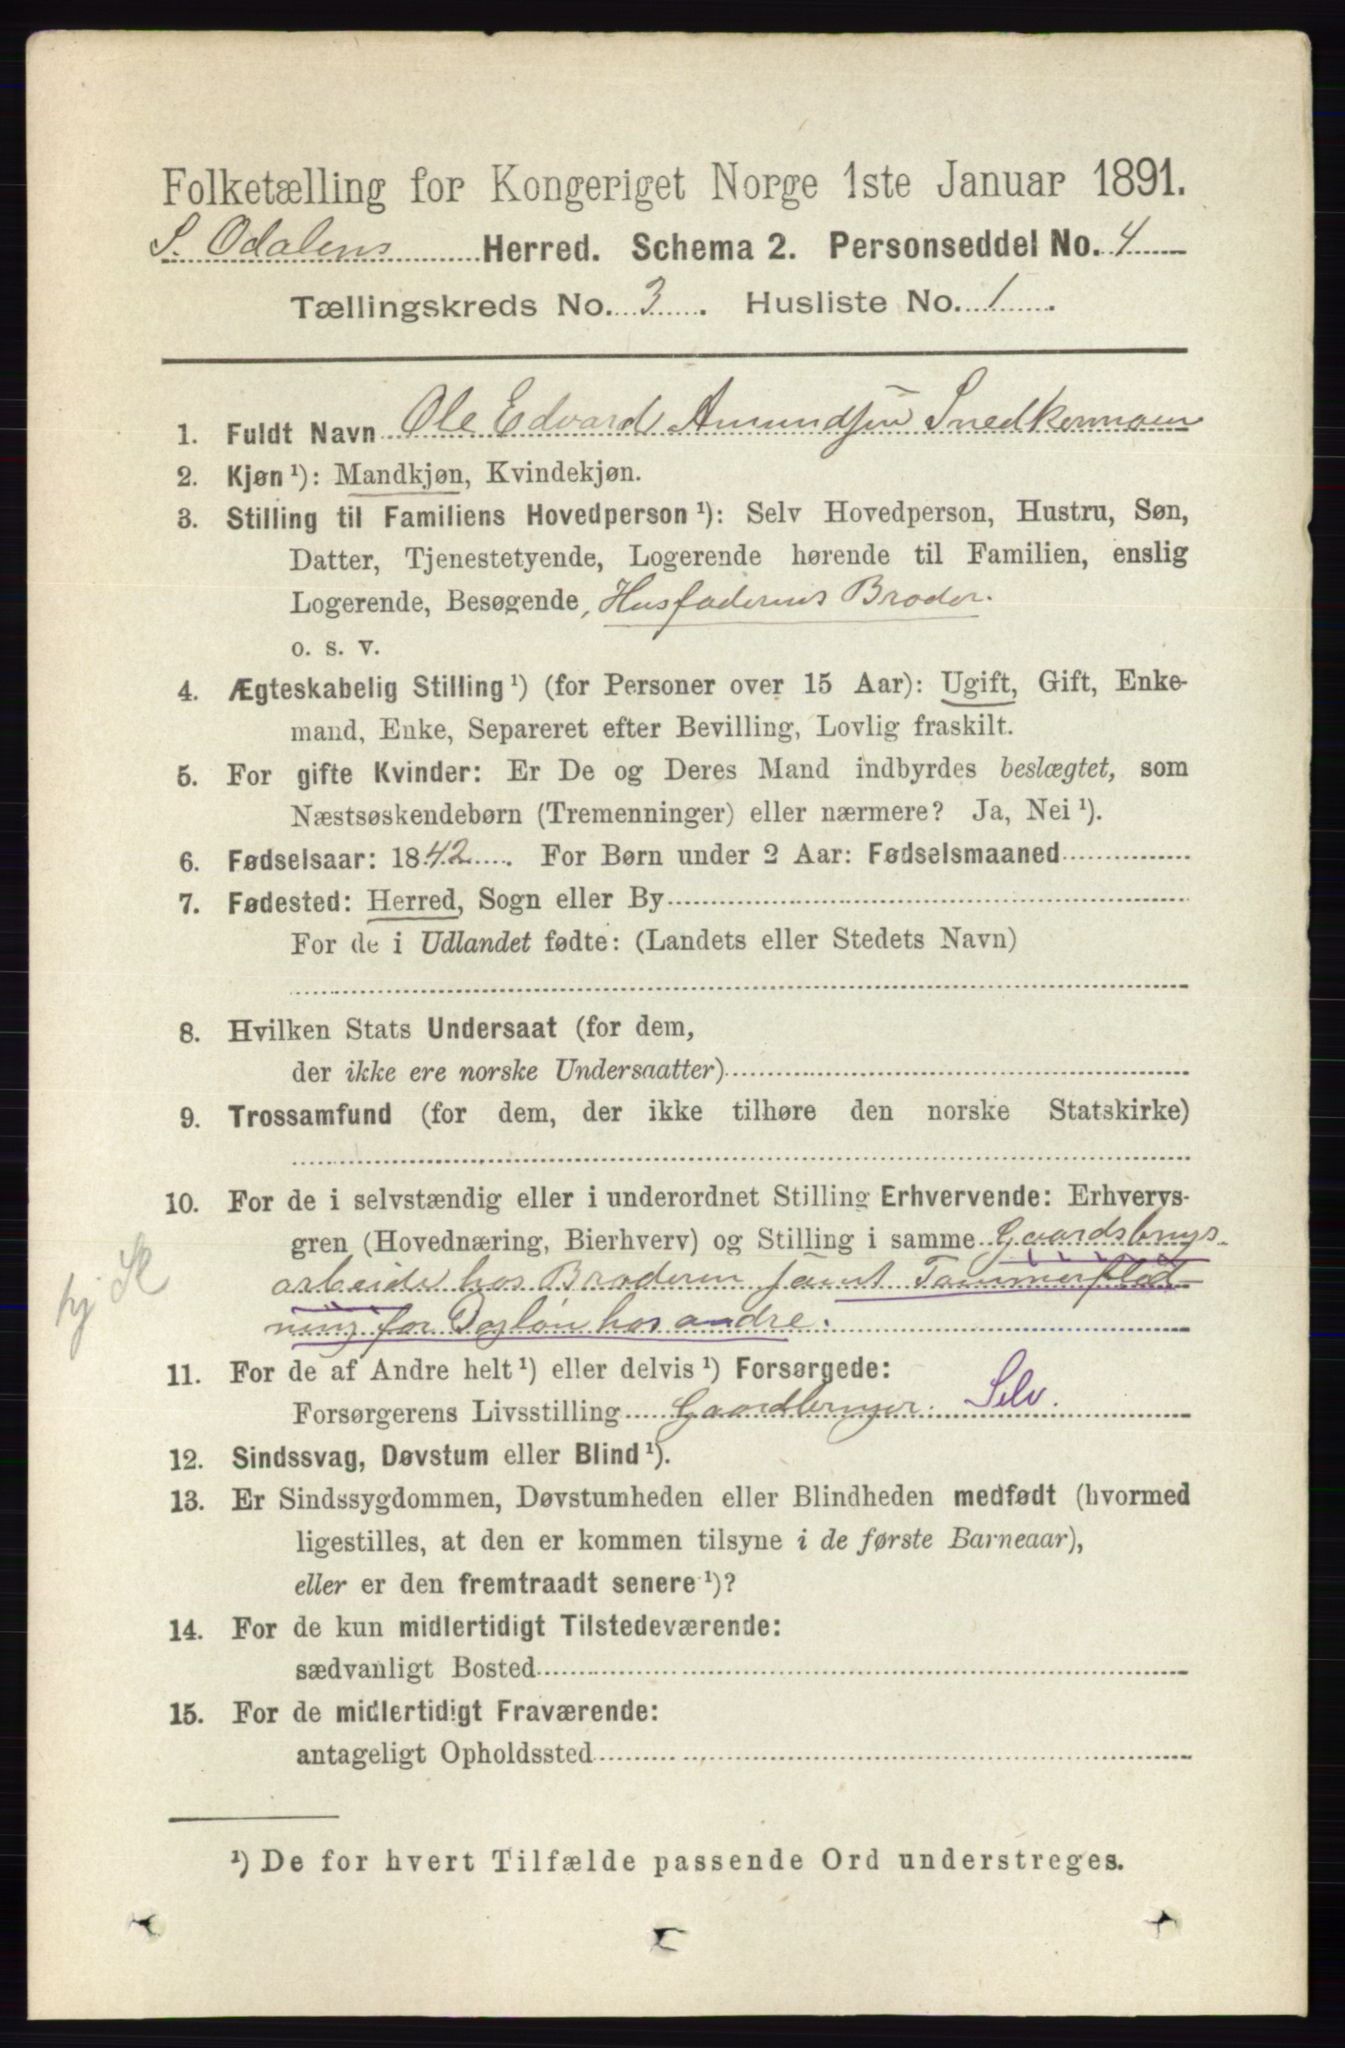 Folketælling for Kongeriget Norge 1ste Januar 1891.
S. Odalens Herred. Schema 2. Personseddel No. 4
Tællingskreds No. 3. Husliste No. 1.
1. Fuldt Navn Ole Edvard Amundsen Snedkermoen
2. Kjøn ¹): Mandkjøn, Kvindekjøn.
3. Stilling til Familiens Hovedperson ¹): Selv Hovedperson, Hustru, Søn,
Datter, Tjenestetyende, Logerende hørende til Familien, enslig
Logerende, Besøgende, Husfaderens Broder.
o. s. v.
4. Ægteskabelig Stilling ¹) (for Personer over 15 Aar): Ugift, Gift, Enke-
mand, Enke, Separeret efter Bevilling, Lovlig fraskilt.
5. For gifte Kvinder: Er De og Deres Mand indbyrdes beslægtet, som
Næstsøskendebørn (Tremenninger) eller nærmere? Ja, Nei ¹).
6. Fødselsaar: 1842. For Børn under 2 Aar: Fødselsmaaned
7. Fødested: Herred, Sogn eller By
For de i Udlandet fødte: (Landets eller Stedets Navn)
8. Hvilken Stats Undersaat (for dem,
der ikke ere norske Undersaatter)
9. Trossamfund (for dem, der ikke tilhøre den norske Statskirke)
10. For de i selvstændig eller i underordnet Stilling Erhvervende: Erhvervs-
gren (Hovednæring, Bierhverv) og Stilling i samme Gaardsbrugs-
arbeide hos Broderen samt Tømmerflød-
hj Sk
ning for Dagløn hos andre.
11. For de af Andre helt ¹) eller delvis ¹) Forsørgede:
Forsørgerens Livsstilling Gaardbruger. Selv.
12. Sindssvag, Døvstum eller Blind ¹).
13. Er Sindssygdommen, Døvstumheden eller Blindheden medfødt (hvormed
ligestilles, at den er kommen tilsyne i de første Barneaar),
eller er den fremtraadt senere ¹)?
14. For de kun midlertidigt Tilstedeværende:
sædvanligt Bosted
15. For de midlertidigt Fraværende:
antageligt Opholdssted
¹) De for hvert Tilfælde passende Ord understreges.